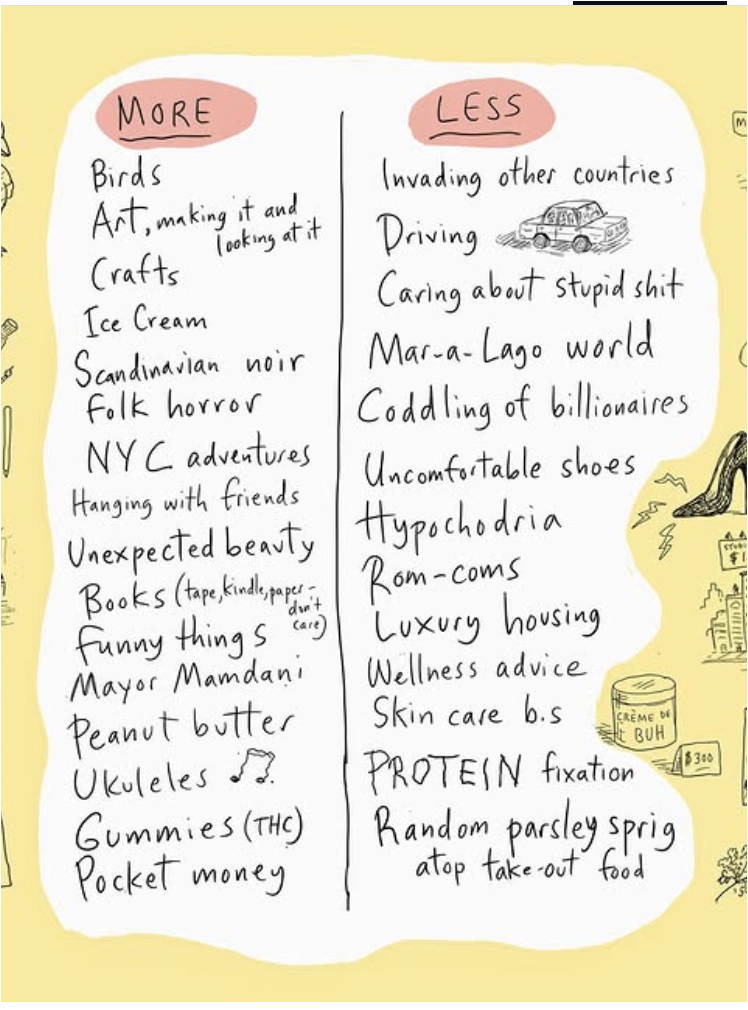 MORE
Birds
Art, making it and
looking at it
Crafts
Ice Cream
Scandinavian noir
Folk horror
NYC adventures
Hanging with friends
Unexpected beauty
Books (tape, kindle, paper -
don't
care)
Funny things
Mayor Mamdani
Peanut butter
Ukuleles
Gummies (THC)
Pocket money
LESS
Invading other countries
Driving
Caring about stupid shit
Mar-a-Lago world
Coddling of billionaires
Uncomfortable shoes
Hypochodria
Rom-coms
Luxury housing
Wellness advice
Skin care b.s
CRÈME DE
BUH
$300
PROTEIN fixation
Random parsley sprig
atop take-out food